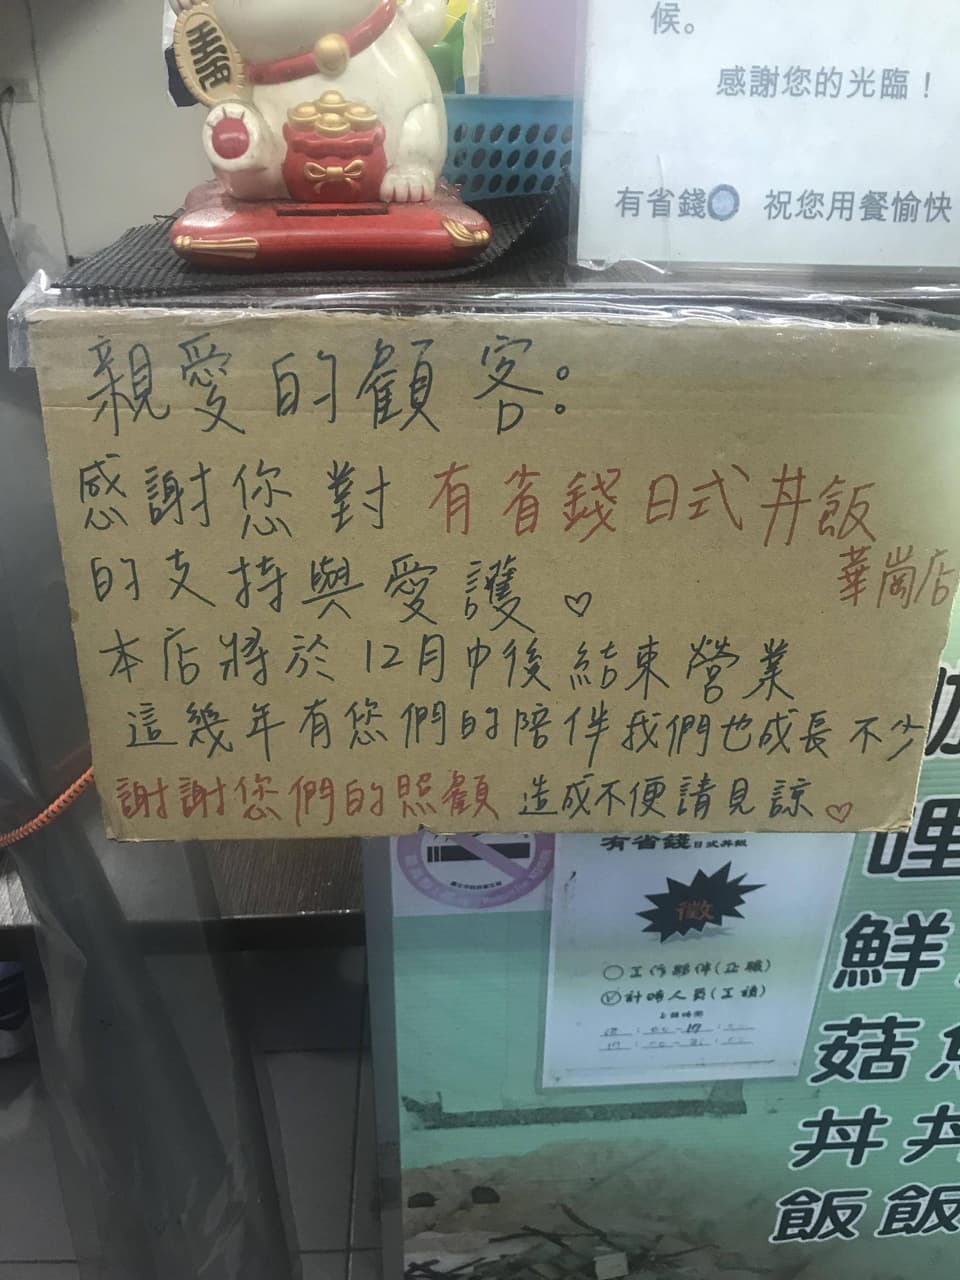 候。
感謝您的光臨！
有省錢 祝您用餐愉快
親愛的顧客：
感謝您對有省錢日式丼飯
華崗店
的支持與愛護♡
本店將於12月中後結束營業
這幾年有您們的陪伴我們也成長不少
謝謝您們的照顧 造成不便請見諒♡
有省錢日式丼飯
徵
○工作夥伴(正職)
計時人員(工讀)
哩
鮮
菇
丼丼
飯飯